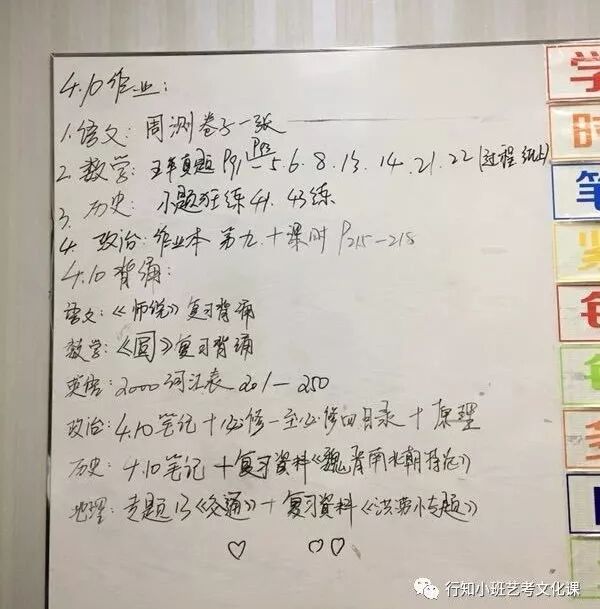 4.10作业:
1.语文: 周测卷子一张
2.数学: 五年真题 P91—P93 5.6.8.13.14.21.22(过程纸上)
3.历史: 小题狂练41.43练
4.政治: 作业本 第九、十课时 P215—218
4.10背诵:
语文:《师说》复习背诵
数学:《圆》复习背诵
英语: 2000词汇表 201—250
政治: 4.10笔记+必修一至必修四目录+原理
历史: 4.10笔记+复习资料《魏晋南北朝
地理: 专题13《交通》+复习资料《洪涝小专题》
学
时
笔
行知小班艺考文化课